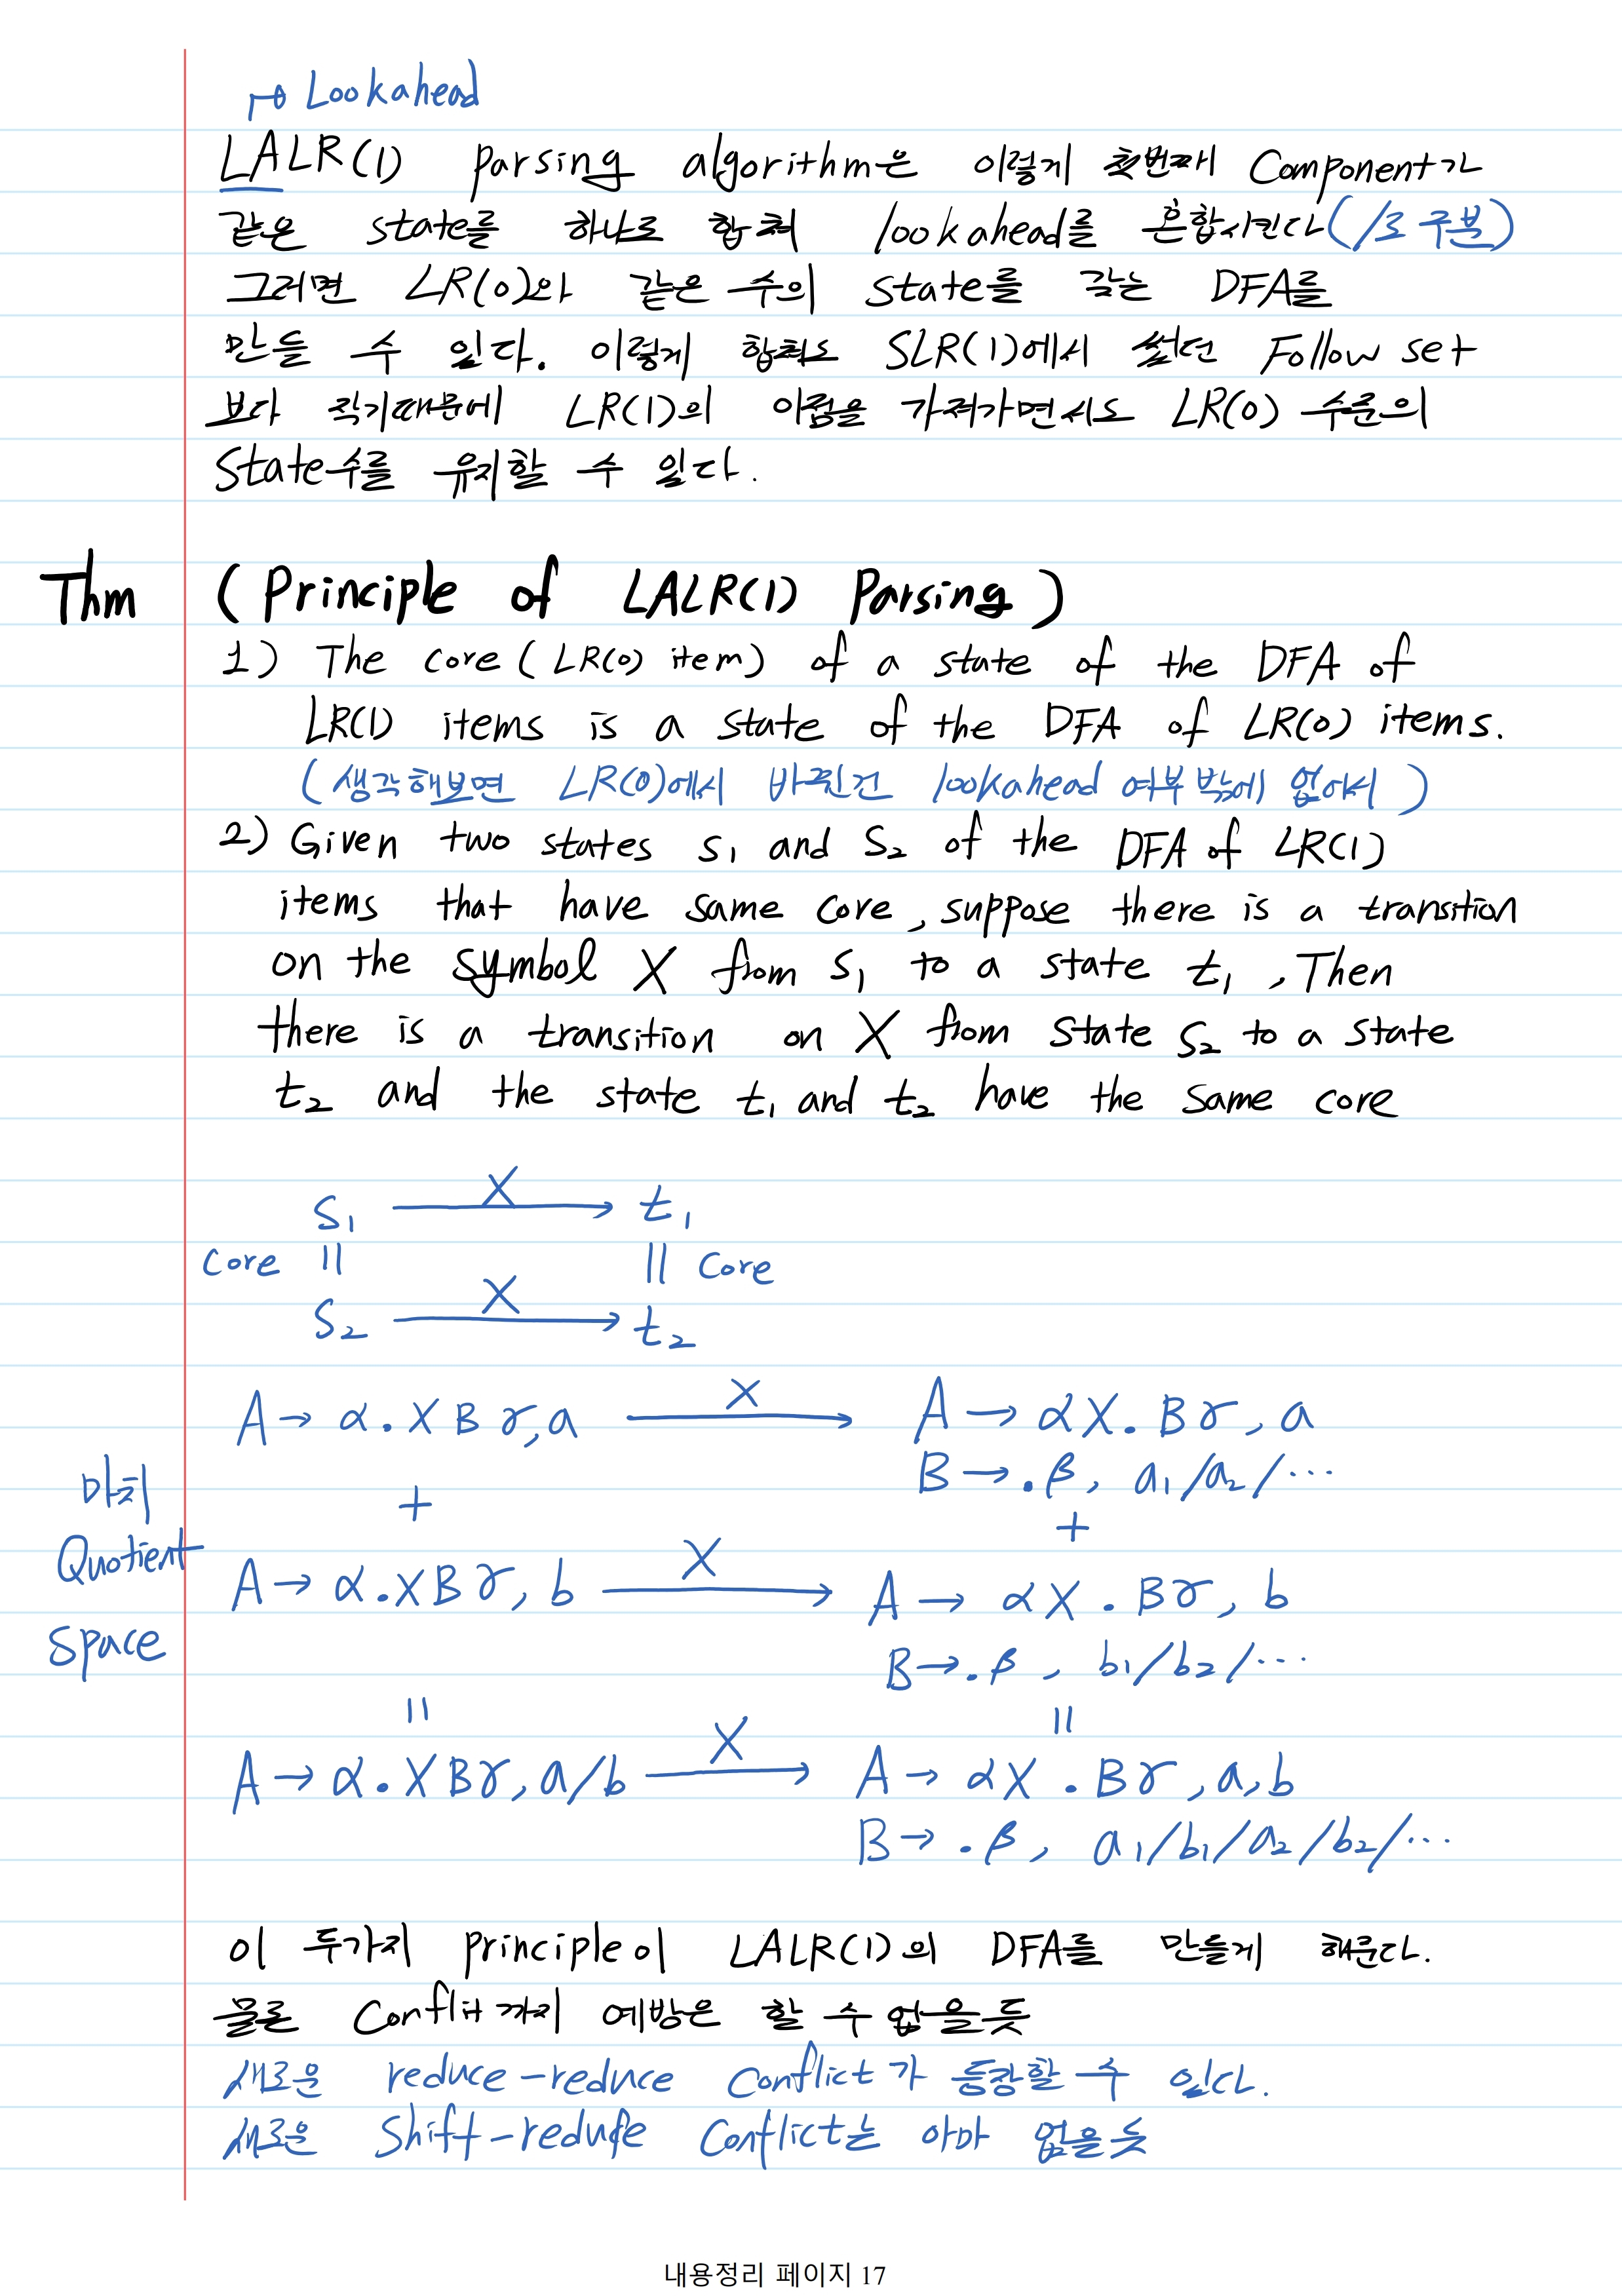 ↦ Lookahead
LALR(1) parsing algorithm은 이렇게 첫번째 Component가
같은 state를 하나로 합쳐 lookahead를 혼합시킨다 (/로 구분)
그러면 LR(0)와 같은 수의 state를 갖는 DFA를
만들 수 있다. 이렇게 합쳐도 SLR(1)에서 썼던 Follow set
보다 작기때문에 LR(1)의 이점을 가져가면서도 LR(0) 수준의
State수를 유지할 수 있다.
Thm (Principle of LALR(1) Parsing)
1) The core (LR(0) item) of a state of the DFA of
LR(1) items is a state of the DFA of LR(0) items.
(생각해보면 LR(0)에서 바뀐건 lookahead 여부 밖에 없어서)
2) Given two states s₁ and s₂ of the DFA of LR(1)
items that have same core, suppose there is a transition
on the symbol X from s₁ to a state t₁, Then
there is a transition on X from state s₂ to a state
t₂ and the state t₁ and t₂ have the same core
s₁ →X t₁
core || || core
s₂ →X t₂
A → α.XBγ, a →X A → αX.Bγ, a
B → .β, a₁/a₂/⋯
마치 Quotient space
+ +
A → α.XBγ, b →X A → αX.Bγ, b
B → .β, b₁/b₂/⋯
|| ||
A → α.XBγ, a/b →X A → αX.Bγ, a,b
B → .β, a₁/b₁/a₂/b₂/⋯
이 두가지 principle이 LALR(1)의 DFA를 만들게 해준다.
물론 Conflit까지 예방은 할 수 없을듯
새로운 reduce-reduce Conflict가 등장할 수 있다.
새로운 Shift-reduce Conflict는 아마 없을듯
내용정리 페이지 17